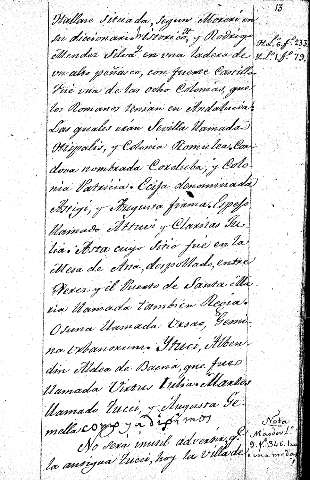 13
Hallase situada, segun Moreri en
su diccionario historico, y Rodrigo
Mendez Silva en una ladera de
un alto peñasco, con fuerte Castillo
Fue una de las ocho Colonias, que
los Romanos tenian en Andalucia:
Las quales eran Sevilla llamada
Hispalis, y Colonia Romulea, Cor
dova nombrada Corduba, y Colo
nia Patricia. Ecija denominada
Astigi, y Augusta firma. Espejo
llamado Attuci, y Claritas Ju
lia. Asta cuyo sitio fue en la
Mesa de Asta, despoblado, entre
Xerez y el Puerto de Santa Ma
ria llamada tambien Regia.
Osuna llamada Ursao, Gemi
na Urbanorum. Ytuci, Alben
din Aldea de Baena, que fue
llamada Virtus Julia. Martos
llamado Tucci, y Augusta Ge
mella.
No será inutil advertir, qe
la antigua Tucci, hoy la villa de
Nota